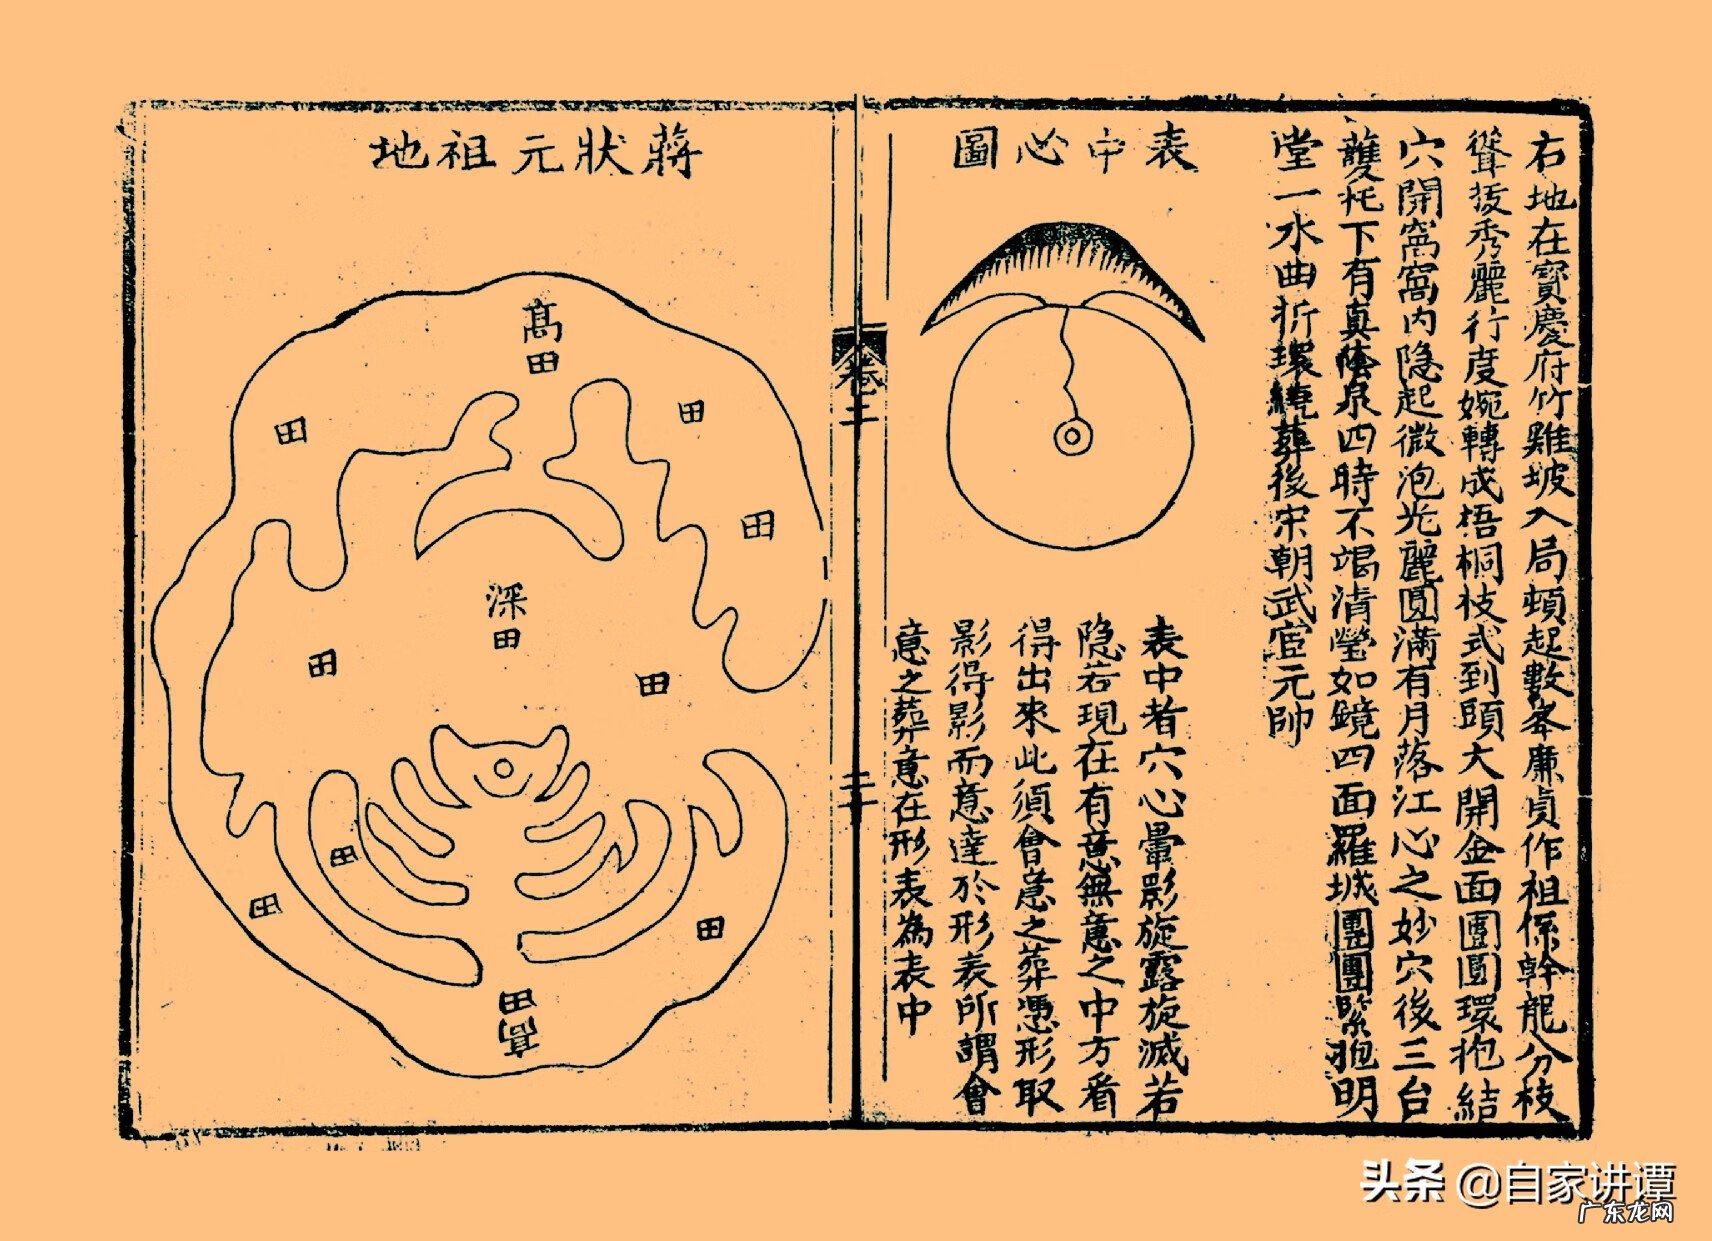 右地在寶慶府竹雞坡入局頓起數峯廉貞作祖係幹龍分枝
聳拔秀麗行度婉轉成梧桐枝式到頭大開金面團圓環抱結
穴開窩窩內隐起微泡光麗圓滿有月落江心之妙穴後三台
護托下有真陰泉四時不竭清瑩如鏡四面羅城團團緊抱明
堂一水曲折環繞葬後宋朝武官元帥
表中心圖
表中者穴心暈影旋露旋滅若
隐若現在有意無意之中方看
得出來此須會意之葬憑形取
影得影而意達於形表所謂會
意之葬意在形表為表中
卷二
二十
蔣狀元祖地
高田
田
田
田
深田
田
田
田
田
田
高田
头条 @自家讲谭
广东龙网